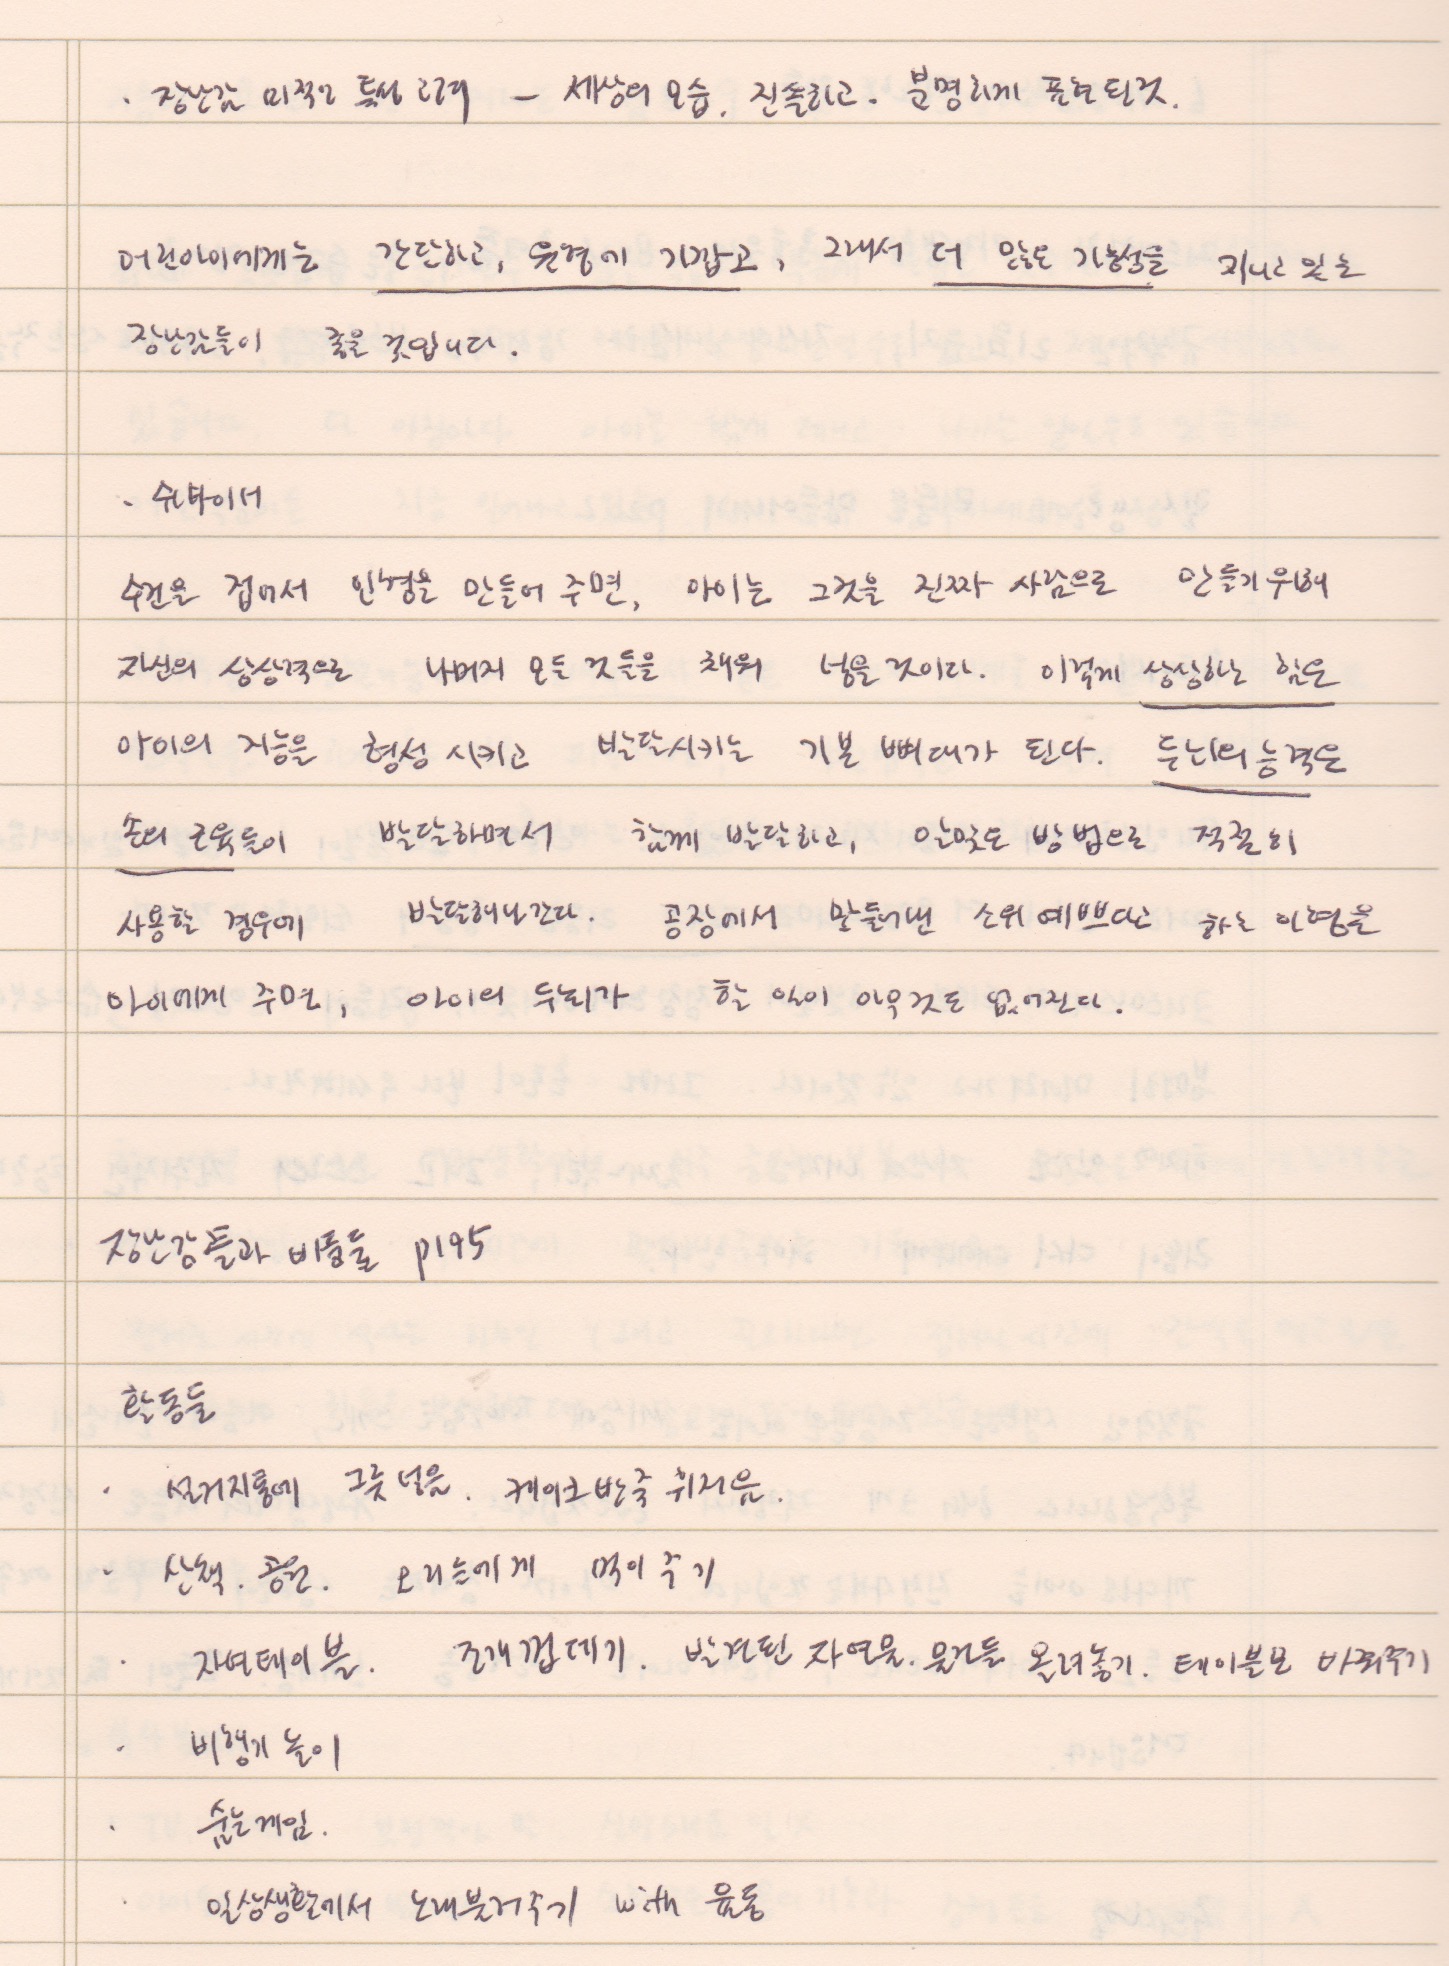 · 장난감 미적인 특성 고려 - 세상의 모습. 진솔하고. 분명하게 표현된것.
어린아이에게는 간단하고, 원형에 가깝고, 그래서 더 많은 가능성을 지니고 있는
장난감들이 좋을 것입니다.
· 슈타이너
수건을 접어서 인형을 만들어 주면, 아이는 그것을 진짜 사람으로 만들기 위해
자신의 상상력으로 나머지 모든 것들을 채워 넣을 것이다. 이렇게 상상하는 힘은
아이의 지능을 형성 시키고 발달시키는 기본 뼈대가 된다. 두뇌의 능력은
손의 근육들이 발달하면서 함께 발달하고, 알맞은 방법으로 적절히
사용할 경우에 발달해나간다. 공장에서 만들어낸 소위 예쁘다고 하는 인형을
아이에게 주면, 아이의 두뇌가 할 일이 아무것도 없어진다.
장난감들과 비품들 p195
활동들
· 설거지통에 그릇 넣음. 케이크 반죽 휘저음.
· 산책. 공원. 오리들에게 먹이 주기
· 자연테이블. 조개껍데기. 발견된 자연물. 물건들 올려놓기. 테이블보 바꿔주기
· 비행기 놀이
· 숨는게임.
· 일상생활에서 노래불러주기 with 율동